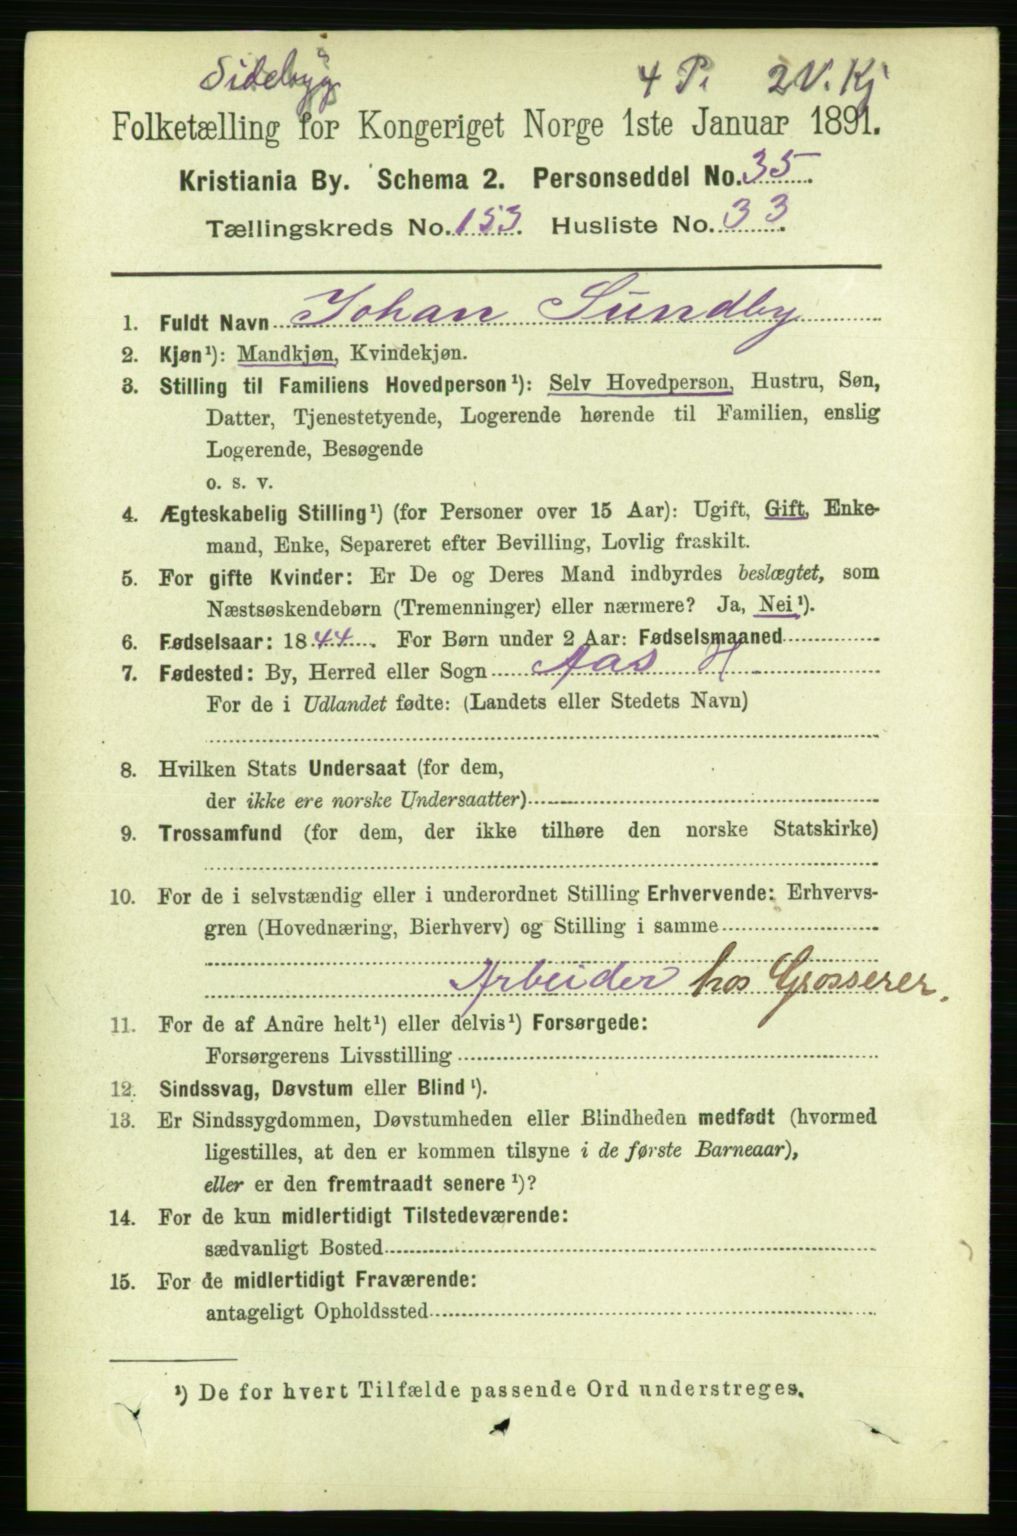 Sidebyg 4 P. 2 V. Kj
Folketælling for Kongeriget Norge 1ste Januar 1891.
Kristiania By. Schema 2. Personseddel No. 35.
Tællingskreds No. 153. Husliste No. 33.
1. Fuldt Navn Johan Sundby
2. Kjøn¹): Mandkjøn, Kvindekjøn.
3. Stilling til Familiens Hovedperson¹): Selv Hovedperson, Hustru, Søn,
Datter, Tjenestetyende, Logerende hørende til Familien, enslig
Logerende, Besøgende
o. s. v.
4. Ægteskabelig Stilling¹) (for Personer over 15 Aar): Ugift, Gift, Enke-
mand, Enke, Separeret efter Bevilling, Lovlig fraskilt.
5. For gifte Kvinder: Er De og Deres Mand indbyrdes beslægtet, som
Næstsøskendebørn (Tremenninger) eller nærmere? Ja, Nei¹).
6. Fødselsaar: 1844. For Børn under 2 Aar: Fødselsmaaned
7. Fødested: By, Herred eller Sogn Aas H
For de i Udlandet fødte: (Landets eller Stedets Navn)
8. Hvilken Stats Undersaat (for dem,
der ikke ere norske Undersaatter)
9. Trossamfund (for dem, der ikke tilhøre den norske Statskirke)
10. For de i selvstændig eller i underordnet Stilling Erhvervende: Erhvervs-
gren (Hovednæring, Bierhverv) og Stilling i samme
Arbeider hos Grosserer.
11. For de af Andre helt¹) eller delvis¹) Forsørgede:
Forsørgerens Livsstilling
12. Sindssvag, Døvstum eller Blind¹).
13. Er Sindssygdommen, Døvstumheden eller Blindheden medfødt (hvormed
ligestilles, at den er kommen tilsyne i de første Barneaar),
eller er den fremtraadt senere¹)?
14. For de kun midlertidigt Tilstedeværende:
sædvanligt Bosted
15. For de midlertidigt Fraværende:
antageligt Opholdssted
¹) De for hvert Tilfælde passende Ord understreges.